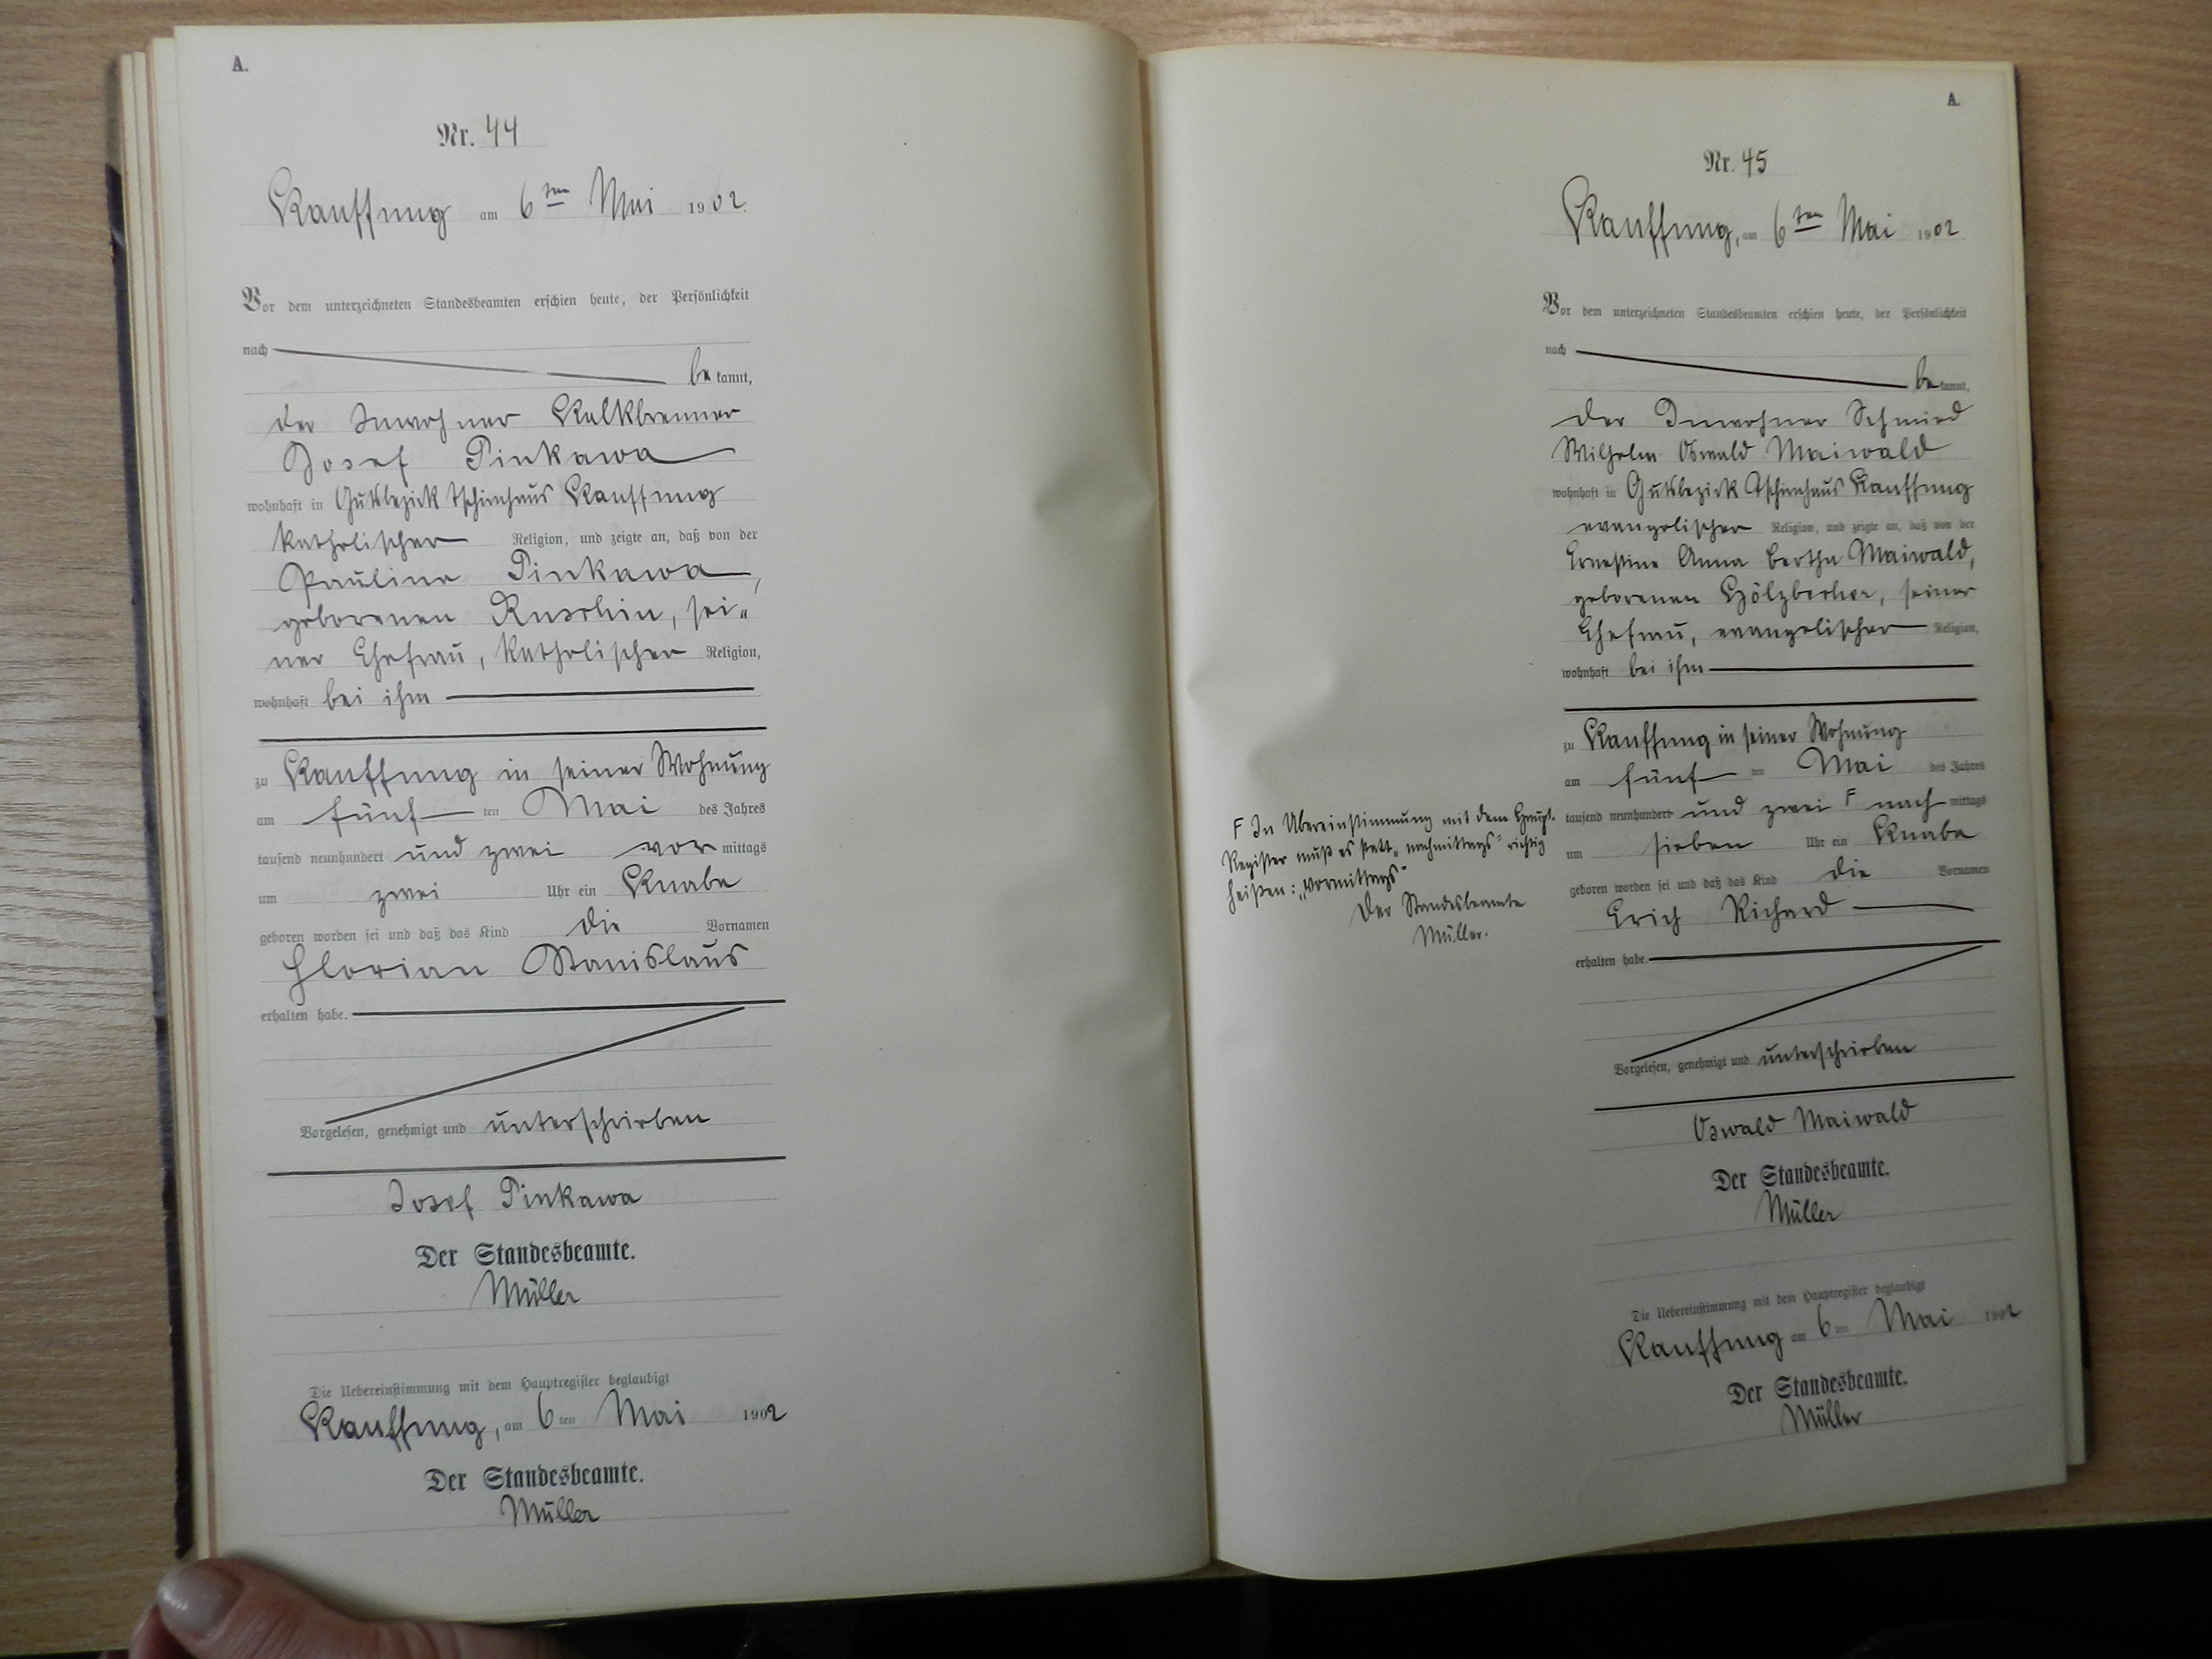 A.
Nr. 44
Kauffung am 6ten Mai 1902.
Vor dem unterzeichneten Standesbeamten erschien heute, der Persönlichkeit
nach
bekannt,
der Inwohner Kalkbrenner
Josef Pinkawa
wohnhaft in Gutsbezirk Tschirnhaus Kauffung
katholischer Religion, und zeigte an, daß von der
Pauline Pinkawa,
geborenen Ruschin, sei„
ner Ehefrau, katholischer Religion,
wohnhaft bei ihm
zu Kauffung in seiner Wohnung
am fünf ten Mai des Jahres
tausend neunhundert und zwei vor mittags
um zwei Uhr ein Knabe
geboren worden sei und daß das Kind die Vornamen
Florian Stanislaus
erhalten habe.
Vorgelesen, genehmigt und unterschrieben
Josef Pinkawa
Der Standesbeamte.
Müller
Die Uebereinstimmung mit dem Hauptregister beglaubigt
Kauffung, am 6ten Mai 1902
Der Standesbeamte.
Müller
A.
Nr. 45
Kauffung, am 6ten Mai 1902.
Vor dem unterzeichneten Standesbeamten erschien heute, der Persönlichkeit
nach
bekannt,
der Inwohner Schmied
Wilhelm Oswald Maiwald
wohnhaft in Gutsbezirk Tschirnhaus Kauffung
evangelischer Religion, und zeigte an, daß von der
Ernestine Anna Bertha Maiwald,
geborenen Hölzbecher, seiner
Ehefrau, evangelischer Religion,
wohnhaft bei ihm
zu Kauffung in seiner Wohnung
am fünf ten Mai des Jahres
tausend neunhundert und zwei F nach mittags
um sieben Uhr ein Knabe
geboren worden sei und daß das Kind die Vornamen
Erich Richard
erhalten habe.
F In Übereinstimmung mit dem Haupt-
Register muß es statt „nachmittags" richtig
heißen: „vormittags"
Der Standesbeamte
Müller.
Vorgelesen, genehmigt und unterschrieben
Oswald Maiwald
Der Standesbeamte.
Müller
Die Uebereinstimmung mit dem Hauptregister beglaubigt
Kauffung am 6ten Mai 1902
Der Standesbeamte.
Müller